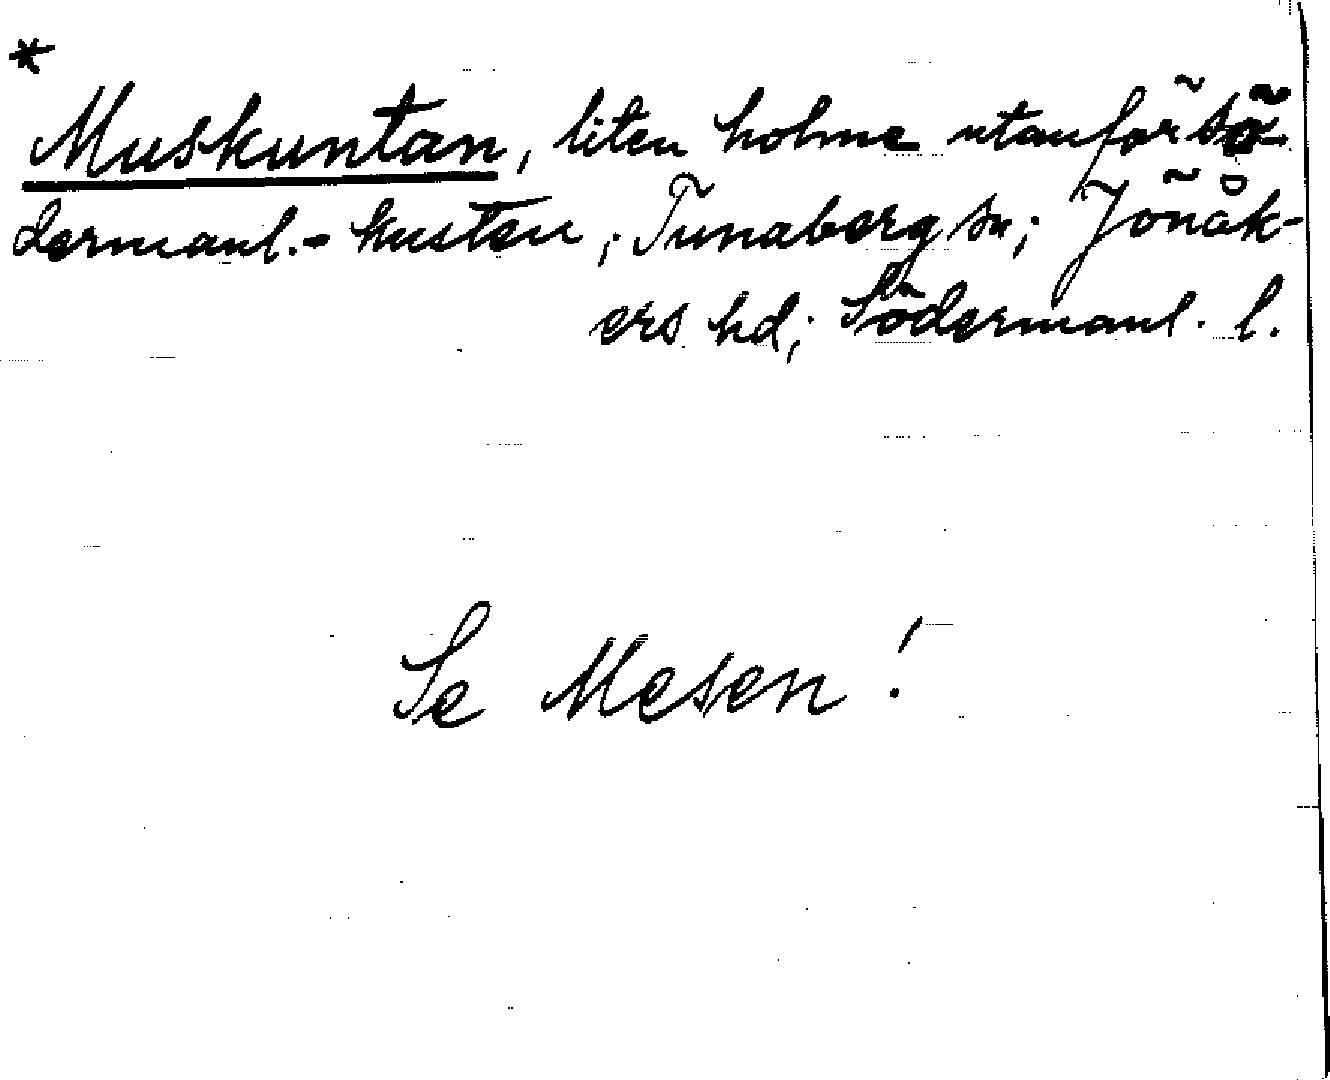 *
Muskuntan, liten holme utanför sö-
dermanl.- kusten, Tunaberg sn; Jönåk-
ers hd; Södermanl. l.
Se Mesen!